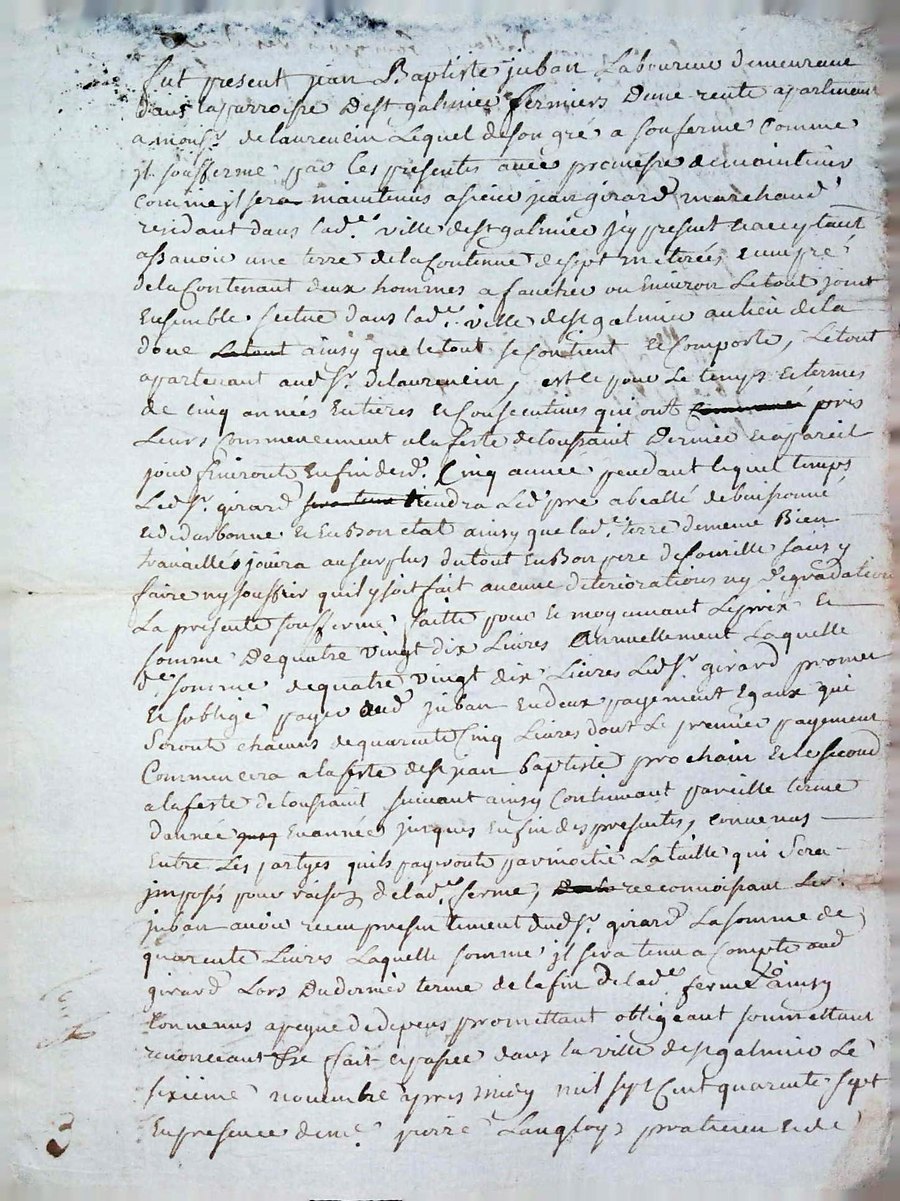 fut present jean Baptiste juban Laboureur demeurant
dans la parroisse de st galmier fermiers D'une rente apartenant
a monsr. delaurencin Lequel de son gré a souferme Comme
jl soufferme par les presentes avec promesse de maintenir
Comme jl sera maintenus a sieur jean girard marchand
residant dans lade. ville de st galmier jcy present & acceptant
assavoir une terre de la Contenue de sept meterées & un pré
de la Contenant deux hommes a faucher ou Environ Le tout joint
Ensemble scitué dans lade. ville de st galmier au lieu de la
doue Le tout ainsy que le tout se Contient & Comporte, Le tout
apartenant aud sr. delaurencin, est ce pour Le temps & termes
de cinq années Entieres & Consecutives qui ont pris
Leurs Commencement a la feste de toussaint Dernier & a pareil
jour finiront En fin desd. Cinq année pendant lequel temps
Led sr. girard tiendra Led pré abeallé debuissonné
& dedarbonné & En Bon etat ainsy que lade. terre de meme Bien
travaillés jouira au surplus du tout En Bon pere de famille sans y
faire ny souffrir qu'il y soit fait aucune deteriorations ny Degradations
La presente soufferme faitte pour & moyennant Le prix &
somme De quatre vingt dix Livres Annuellement Laquelle
de. somme de quatre vingt dix Livres Led sr. girard promet
& s'oblige payer aud juban En deux payement Egaux qui
Seront chacuns de quarente Cinq Livres dont Le premier payement
Commencera a la feste de st jean baptiste prochain & le second
a la feste de toussaint suivant ainsy Continuant pareille terme
d'année En année jusques En fin des presentes, convenus
Entre Les partyes quils payeront par moitié La taille qui Sera
jmposés pour raison de lade. ferme, reconnoissant Led.
juban avoir recu presentement dud sr. girard La somme de
quarente Livres Laquelle somme jl sera tenu a Compte aud
girard Lors Du dernier terme de la fin de lade. ferme & ainsy
Convenus a peyne de depens promettant obligeant soumettant
renonceant &c fait & passée dans la ville de st galmier Le
sixieme novembre apres midy mil sept Cent quarente sept
En presence de me. pierre Langlois praticien & de